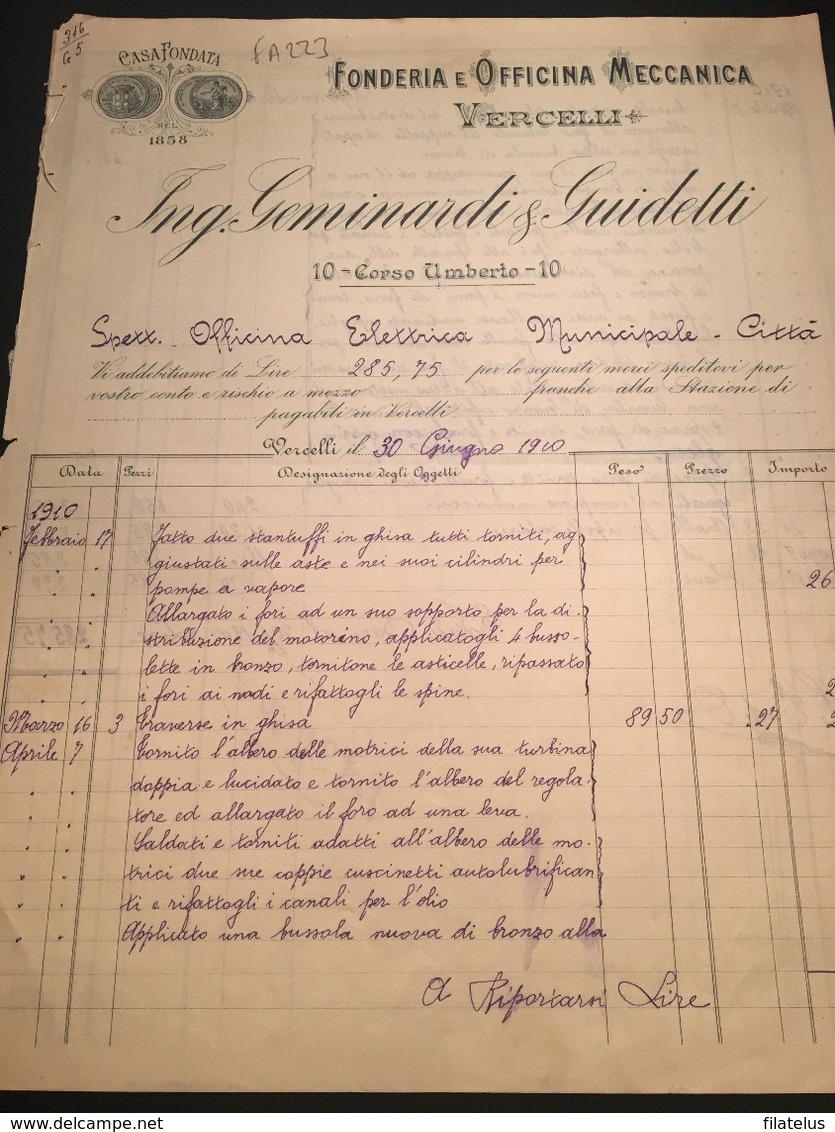 316
G 5
FA223
CASA FONDATA
NEL
1858
FONDERIA E OFFICINA MECCANICA
VERCELLI
Ing. Geminardi & Guidetti
10 - Corso Umberto - 10
Spett. Officina Elettrica Municipale - Città
Vi addebitiamo di Lire 285,75 per le seguenti merci speditevi per
vostro conto e rischio a mezzo franche alla Stazione di
pagabili in Vercelli
Vercelli il 30 Giugno 1910
Data Pezzi Designazione degli Oggetti Peso Prezzo Importo
1910
Febbraio 17 Fatto due stantuffi in ghisa tutti torniti, ag
" " giustati sulle aste e nei suoi cilindri per
" " pompe a vapore 26
" " Allargato i fori ad un suo sopporto per la di.
" " stribuzione del motorino, applicatogli 4 busso-
" " lette in bronzo, tornitone le asticelle, ripassato
" " i fori ai nodi e rifattogli le spine. 2
Marzo 16 3 Traverse in ghisa 89 50 .27 2
Aprile 7 Tornito l'albero delle motrici della sua turbina
doppia e lucidato e tornito l'albero del regola-
" " tore ed allargato il foro ad una leva.
" " Saldati e torniti adatti all'albero delle mo-
" " trici due sue coppie cuscinetti autolubrifican
" " ti e rifattogli i canali per l'olio
" " Applicato una bussola nuova di bronzo alla
A Riportarsi Lire
www.delcampe.net
filatelus